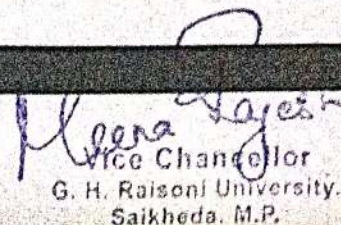 Meera Rajesh
Vice Chancellor
G. H. Raisoni University.
Saikheda. M.P.